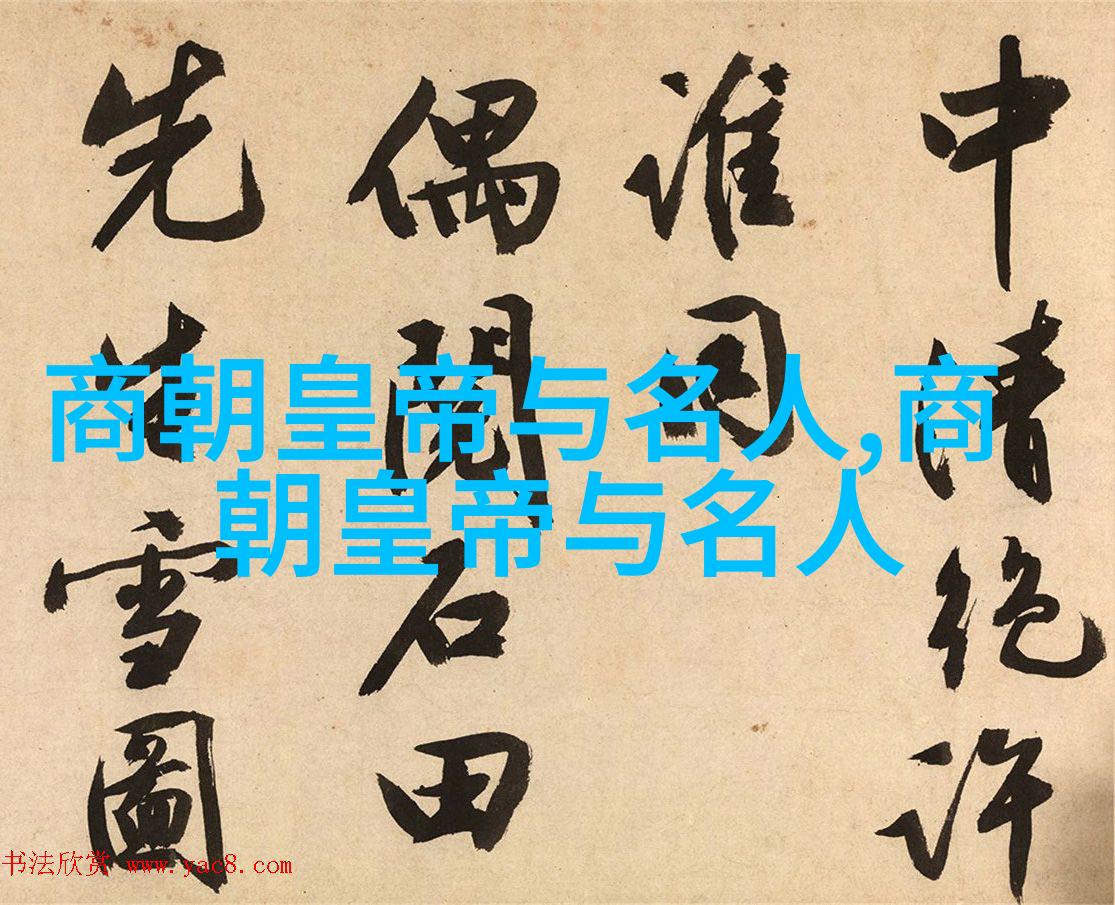 中清絶許
誰同
偶閱石田
先生雪圖
商朝皇帝与名人,商
朝皇帝与名人
书法欣赏 www.yac8.com